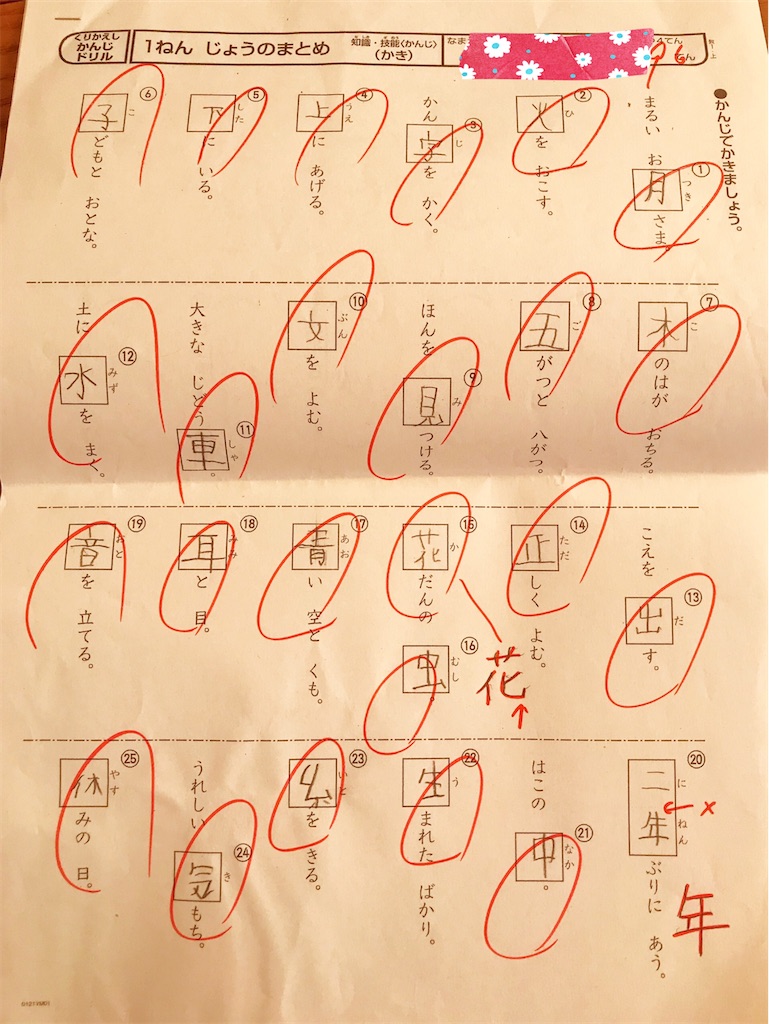 くりかえし かんじ ドリル
1ねん じょうのまとめ
知識・技能〈かんじ〉(かき)
なま
てん
96
●かんじでかきましょう。
① まるい お月さま。 つき
② 火を おこす。 ひ
③ かん字を かく。 じ
④ 上に あげる。 うえ
⑤ 下に いる。 した
⑥ 子どもと おとな。 こ
⑦ 木のはが おちる。 こ
⑧ 五がつと 八がつ。 ご
⑨ ほんを 見つける。 み
⑩ 文を よむ。 ぶん
⑪ 大きな じどう車。 しゃ
⑫ 土に 水を まく。 みず
⑬ こえを 出す。 だ
⑭ 正しく よむ。 ただ
⑮ 花だんの か
⑯ 虫。 むし
花
⑰ 青い 空と くも。 あお
⑱ 耳と 目。 みみ
⑲ 音を 立てる。 おと
⑳ 二年ぶりに あう。 にねん
×
年
㉑ はこの 中。 なか
㉒ 生まれた ばかり。 う
㉓ 糸を きる。 いと
㉔ うれしい 気もち。 き
㉕ 休みの 日。 やす